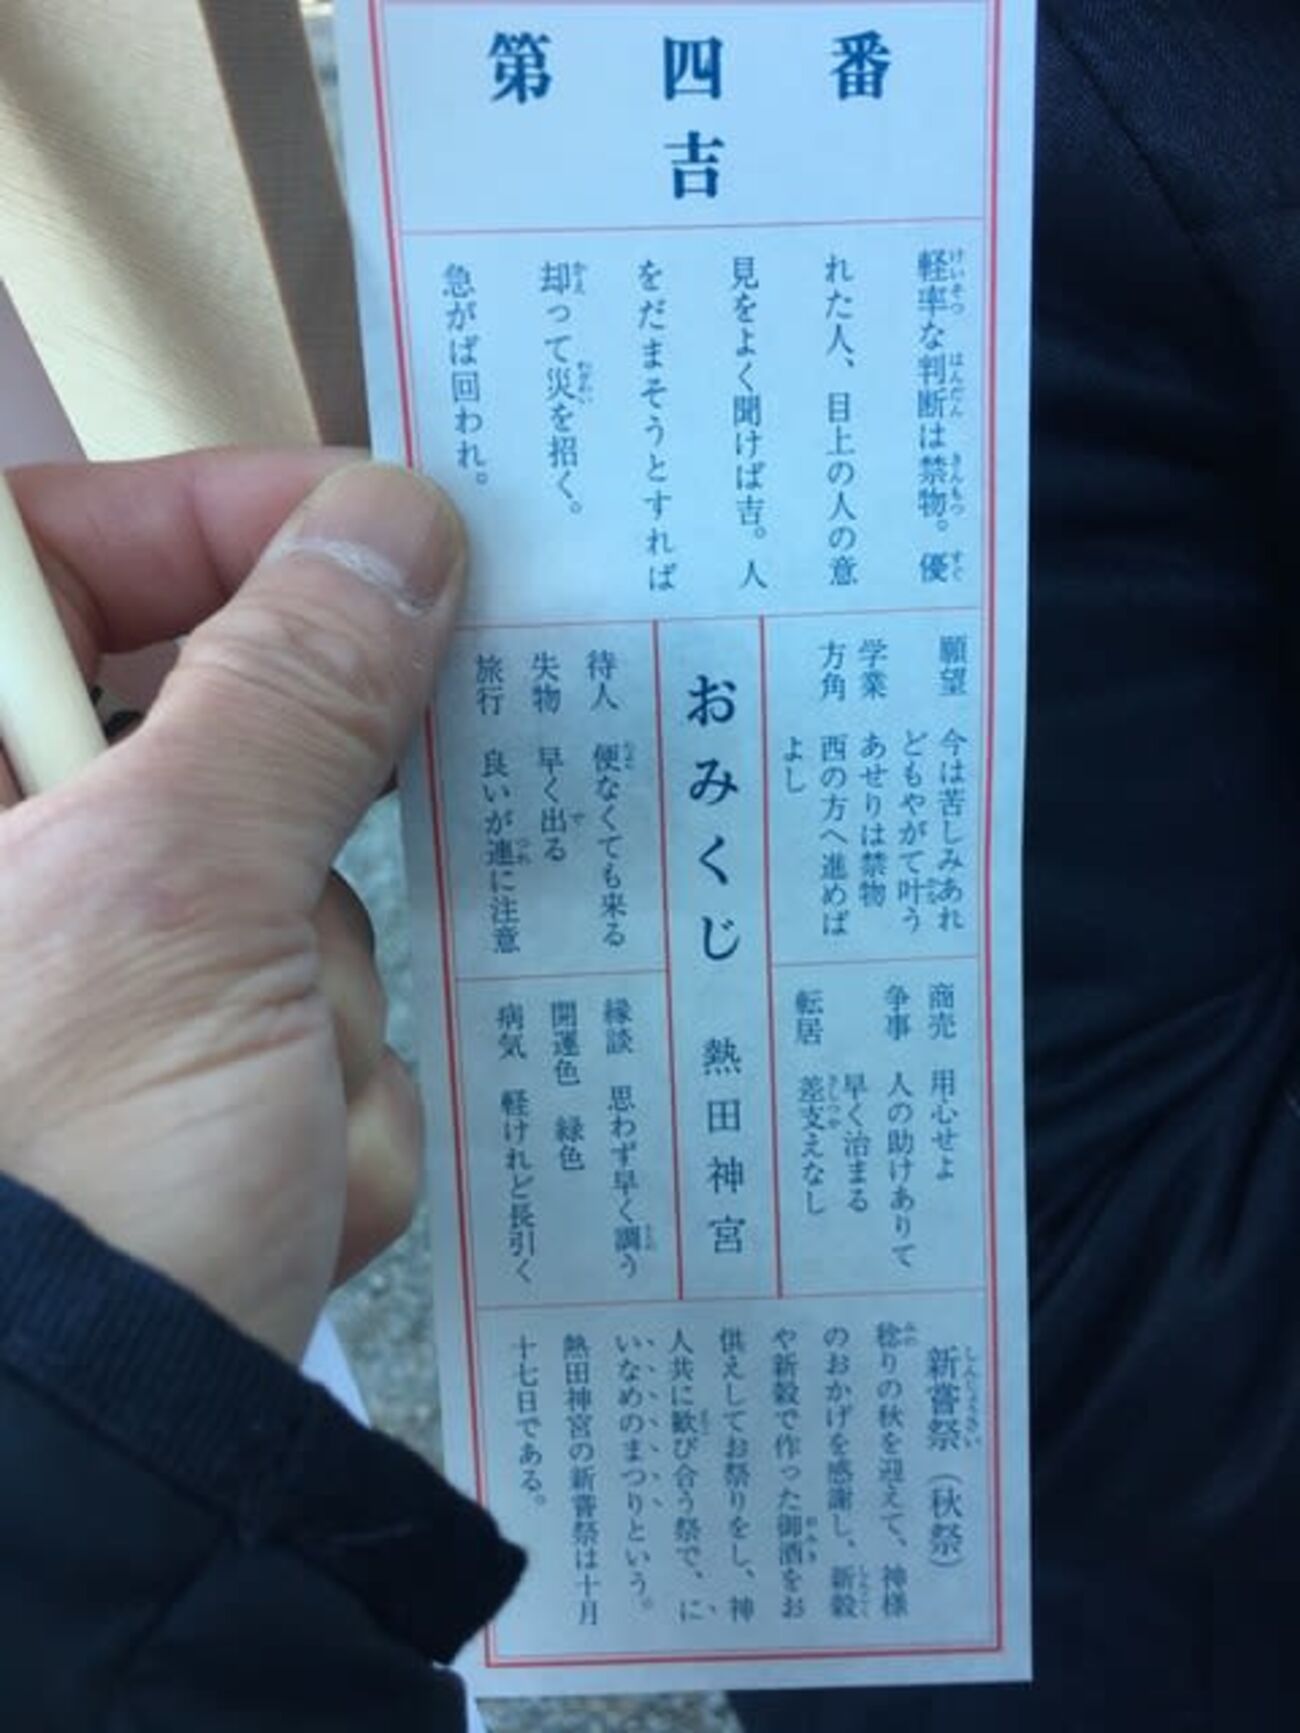 第四番
吉
軽率な判断は禁物。優
れた人、目上の人の意
見をよく聞けば吉。人
をだまそうとすれば
却って災を招く。
急がば回われ。
願望 今は苦しみあれ
どもやがて叶う
学業 あせりは禁物
方角 西の方へ進めば
よし
商売 用心せよ
争事 人の助けありて
早く治まる
転居 差支えなし
おみくじ 熱田神宮
待人 便なくても来る
失物 早く出る
旅行 良いが連に注意
縁談 思わず早く調う
開運色 緑色
病気 軽けれど長引く
新嘗祭(秋祭)
稔りの秋を迎えて、神様
のおかげを感謝し、新穀
や新穀で作った御酒をお
供えしてお祭りをし、神
人共に歓び合う祭で、に
いなめのまつりという。
熱田神宮の新嘗祭は十月
十七日である。